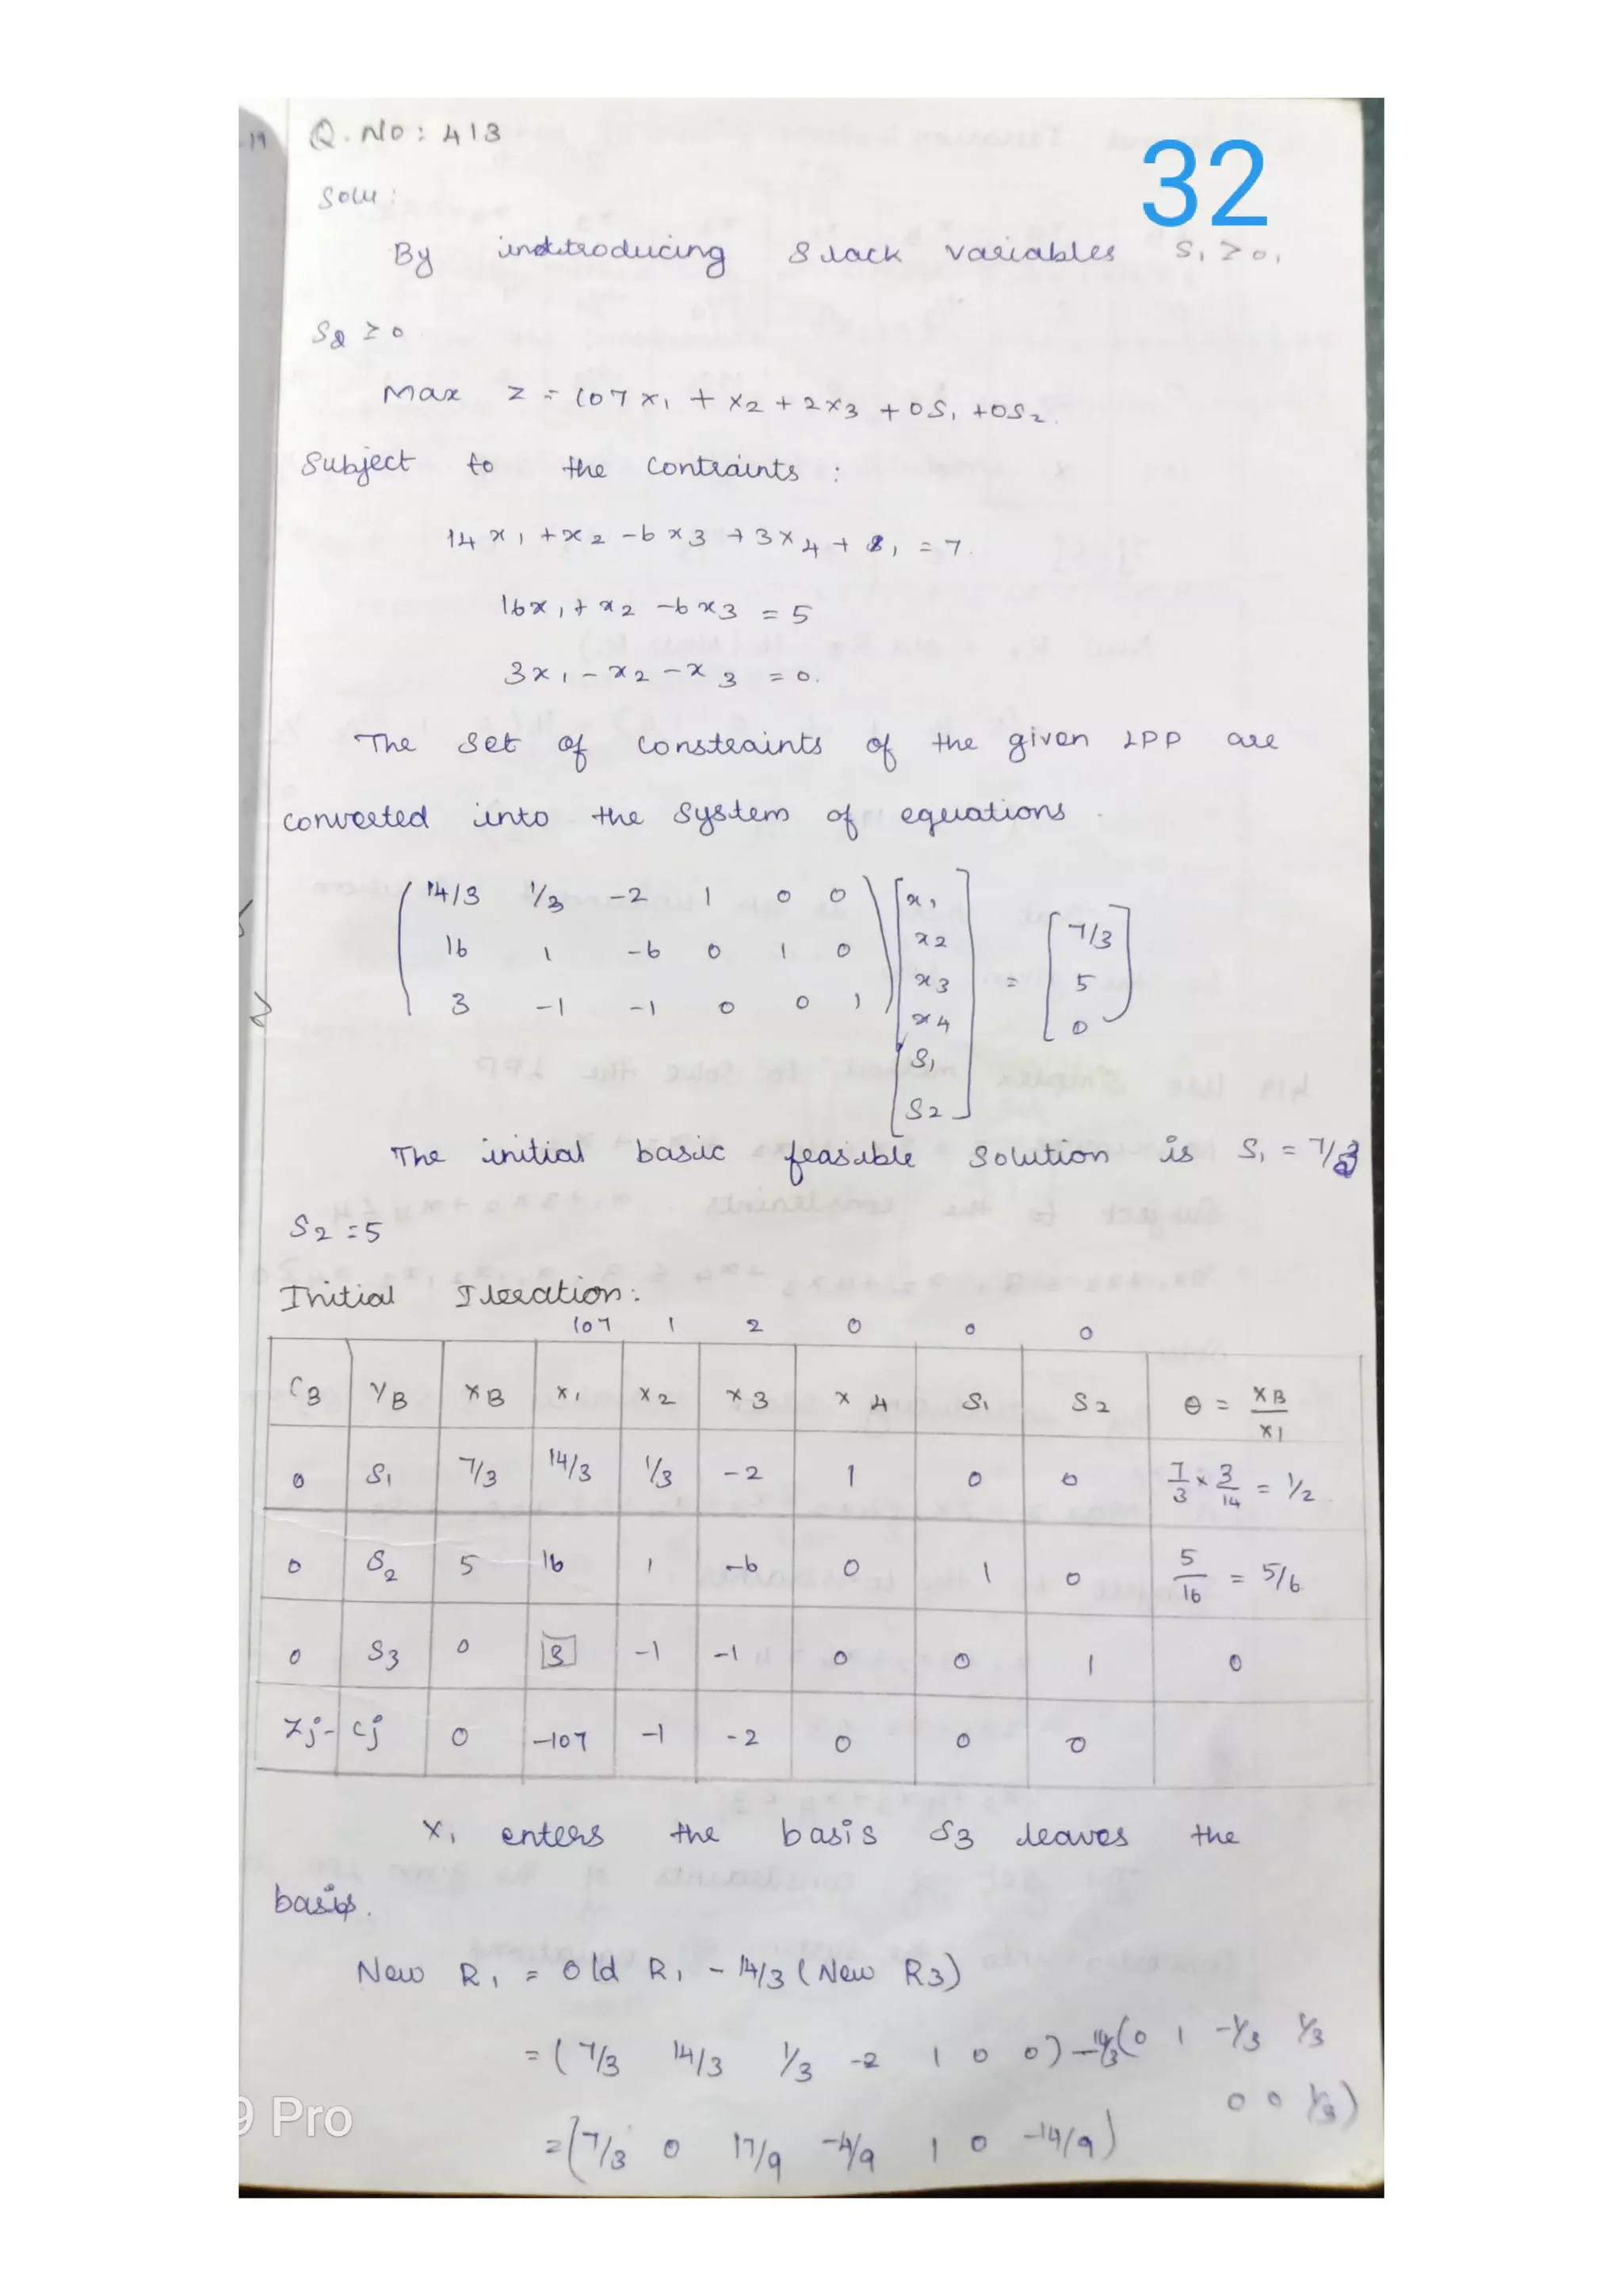 -19 Q. No: 413
32
Solu:
By inditroducing slack variables S₁ ≥ 0,
S₂ ≥ 0
Max Z = 107x₁ + x₂ + 2x₃ + 0S₁ + 0S₂.
Subject to the Contraints :
14x₁ + x₂ - 6x₃ + 3x₄ + S₁ = 7.
16x₁ + x₂ - 6x₃ = 5
3x₁ - x₂ - x₃ = 0.
The set of constraints of the given LPP are
converted into the system of equations.
14/3 1/3 -2 1 0 0 x₁
16 1 -6 0 1 0 x₂ 7/3
3 -1 -1 0 0 1 x₃ = 5
x₄ 0
S₁
S₂
The initial basic feasible solution is S₁ = 7/3
S₂ = 5
Initial Iteration:
107 1 2 0 0 0
CB YB XB x₁ x₂ x₃ x₄ S₁ S₂ θ = XB/x1
0 S₁ 7/3 14/3 1/3 -2 1 0 0 7/3 × 3/14 = 1/2
0 S₂ 5 16 1 -6 0 1 0 5/16 = 5/6
0 S₃ 0 3 -1 -1 0 0 1 0
Zj - Cj 0 -107 -1 -2 0 0 0
x₁ enters the basis S₃ leaves the
basis.
New R₁ = Old R₁ - 14/3 (New R3)
= (7/3 14/3 1/3 -2 1 0 0) - 14/3 (0 1 -1/3 1/3
0 0 1/3)
= (7/3 0 17/9 -4/9 1 0 -14/9)
9 Pro